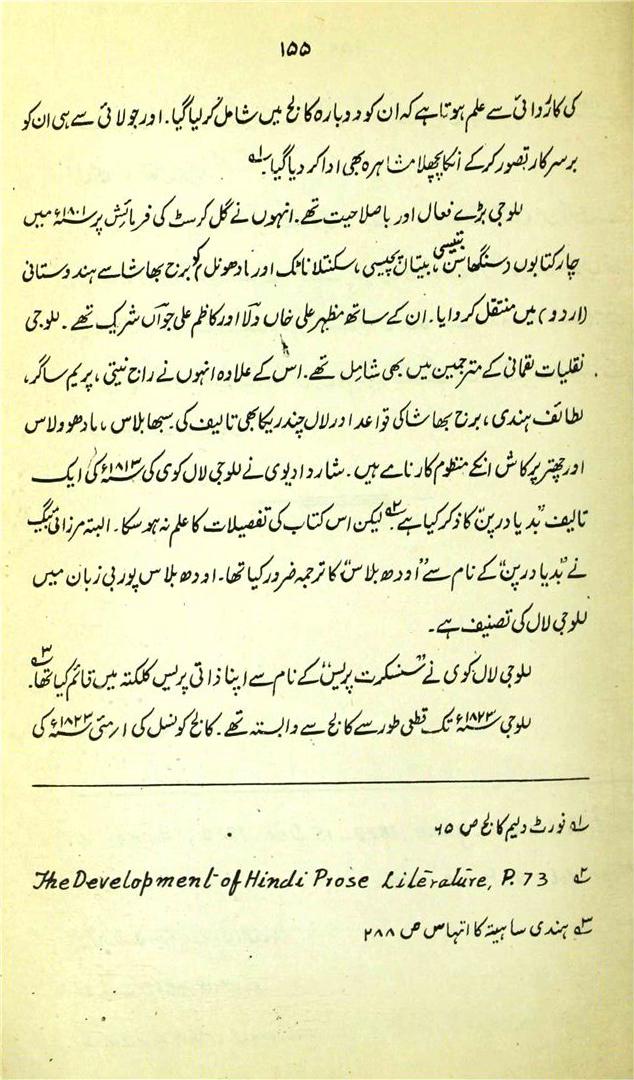 ۱۵۵
کی کاروائی سے علم ہوتا ہے کہ ان کو دوبارہ کالج میں شامل کر لیا گیا۔ اور جولائی سے ہی ان کو
برسرکار تصور کر کے انکا پچھلا مشاہرہ بھی ادا کر دیا گیا ۱؎
للوجی بڑے فعال اور باصلاحیت تھے۔ انہوں نے گل کرسٹ کی فرمائش پر ۱۸۰۱ء میں
چار کتابوں دسنگھاسن بتیسی، بیتال پچیسی، سکنتلا ناٹک اور مادھونل کو برج بھاشا سے ہندوستانی
(اردو) میں منتقل کروایا۔ ان کے ساتھ مظہر علی خاں ولا اور کاظم علی جواں شریک تھے۔ للوجی
نقلیات لقمانی کے مترجمین میں بھی شامل تھے۔ اس کے علاوہ انہوں نے راج نیتی، پریم ساگر،
لطائف ہندی، برج بھاشا کی قواعد اور لال چندریکا بھی تالیف کی۔ سبھا بلاس، مادھو ولاس
اور چھتر پرکاش انکے منظوم کارنامے ہیں۔ شاردا دیوی نے للوجی لال کوی کی ۱۸۱۳ء کی ایک
تالیف "بدیا درپن" کا ذکر کیا ہے ۲؎ لیکن اس کتاب کی تفصیلات کا علم نہ ہو سکا۔ البتہ مرزائی بیگ
نے "بدیا درپن" کے نام سے "اودھ بلاس" کا ترجمہ ضرور کیا تھا۔ اودھ بلاس پوربی زبان میں
للوجی لال کی تصنیف ہے۔
للوجی لال کوی نے "سنسکرت پریس" کے نام سے اپنا ذاتی پریس کلکتہ میں قائم کیا تھا۔ ۳؎
للوجی ۱۸۲۳ء تک قطعی طور سے کالج سے وابستہ تھے۔ کالج کونسل کی ۱/ مئی ۱۸۲۳ء کی
۱؎ فورٹ ولیم کالج ص ۶۵
۲؎ The Development of Hindi Prose Literature, P. 73
۳؎ ہندی ساہتیہ کا اتہاس ص ۲۸۸